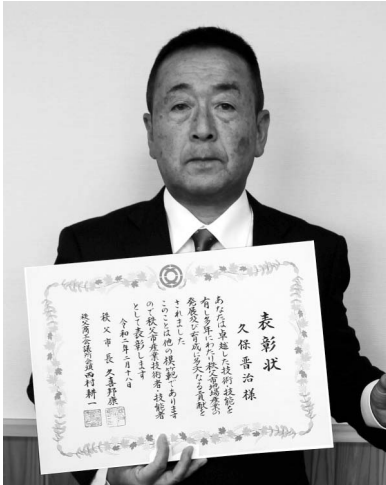 表彰状
久保晋治様
あなたは卓越した技術・技能を
有し多年にわたり秩父市地場産業の
発展及び育成に多大なる貢献を
されました
このことは他の模範であります
ので秩父市産業技術者・技能者
として表彰します
令和二年二月十八日
秩父市長 久喜邦康
秩父商工会議所会頭 西村耕一